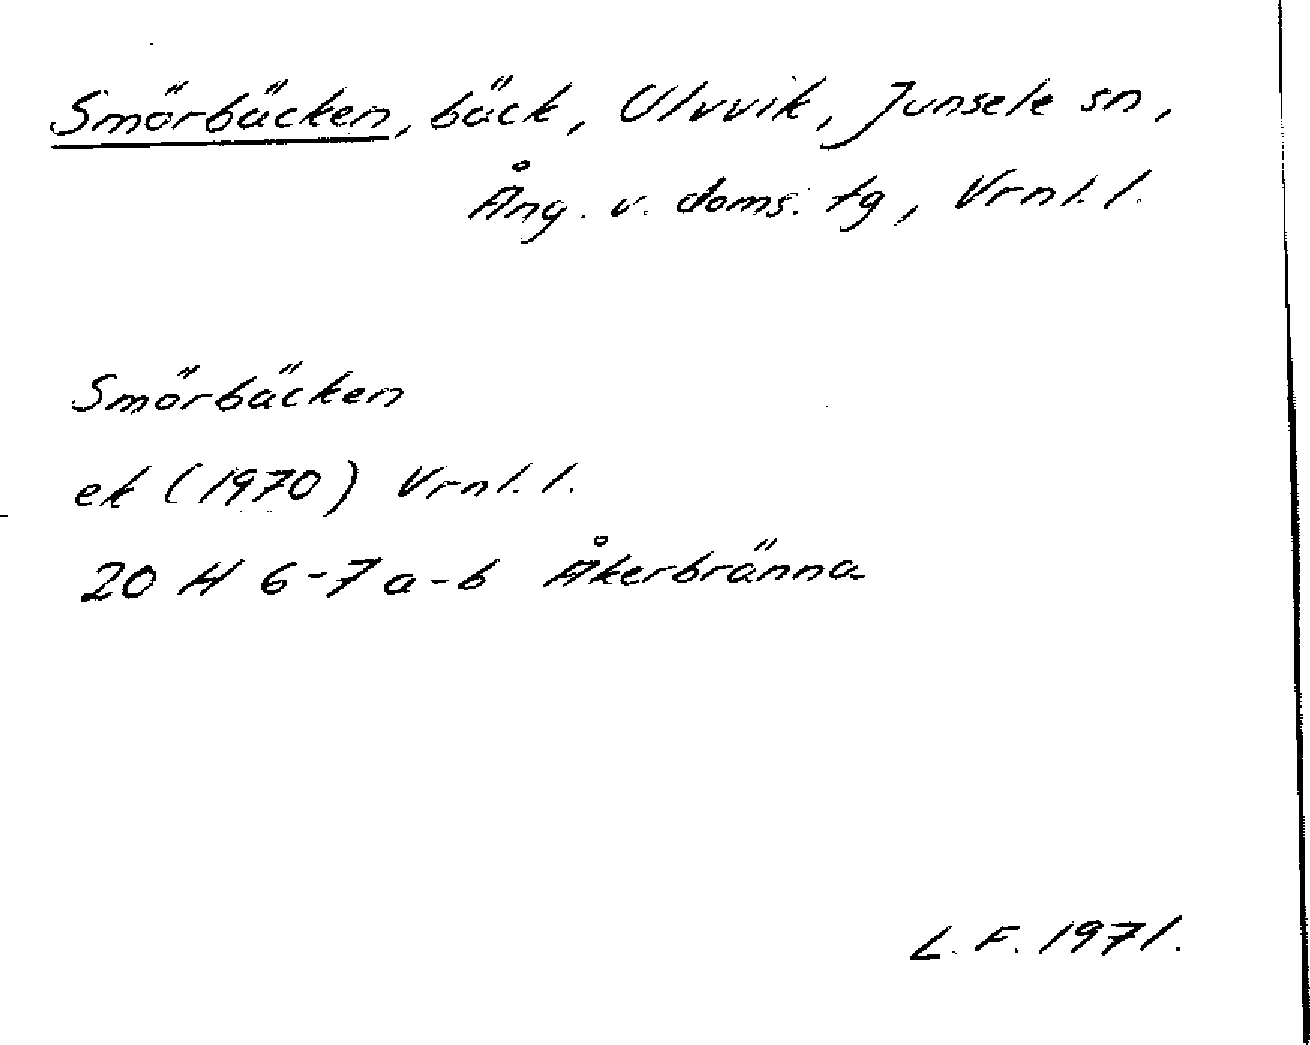 Smörbäcken, bäck, Ulvvik, Junsele sn,
Ång. v. doms. tg, Vrnl. l.
Smörbäcken
ek (1970) Vrnl. l.
20 H 6-7 a-b Åkerbränna
L. F. 1971.